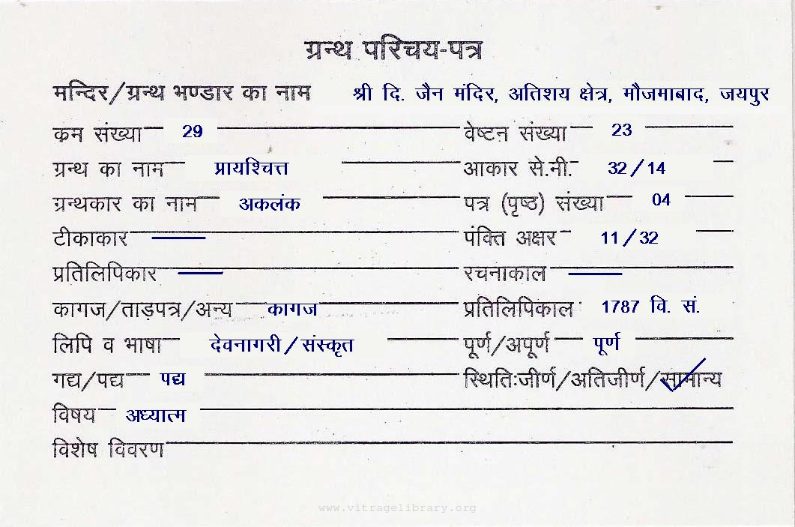 ग्रन्थ परिचय-पत्र
मन्दिर/ग्रन्थ भण्डार का नाम श्री दि. जैन मंदिर, अतिशय क्षेत्र, मौजमाबाद, जयपुर
कम संख्या 29 वेष्टन संख्या 23
ग्रन्थ का नाम प्रायश्चित्त आकार से.मी. 32/14
ग्रन्थकार का नाम अकलंक पत्र (पृष्ठ) संख्या 04
टीकाकार पंक्ति अक्षर 11/32
प्रतिलिपिकार रचनाकाल
कागज/ताड़पत्र/अन्य कागज प्रतिलिपिकाल 1787 वि. सं.
लिपि व भाषा देवनागरी/संस्कृत पूर्ण/अपूर्ण पूर्ण
गद्य/पद्य पद्य स्थितिःजीर्ण/अतिजीर्ण/सामान्य
विषय अध्यात्म
विशेष विवरण
www.vitragelibrary.org